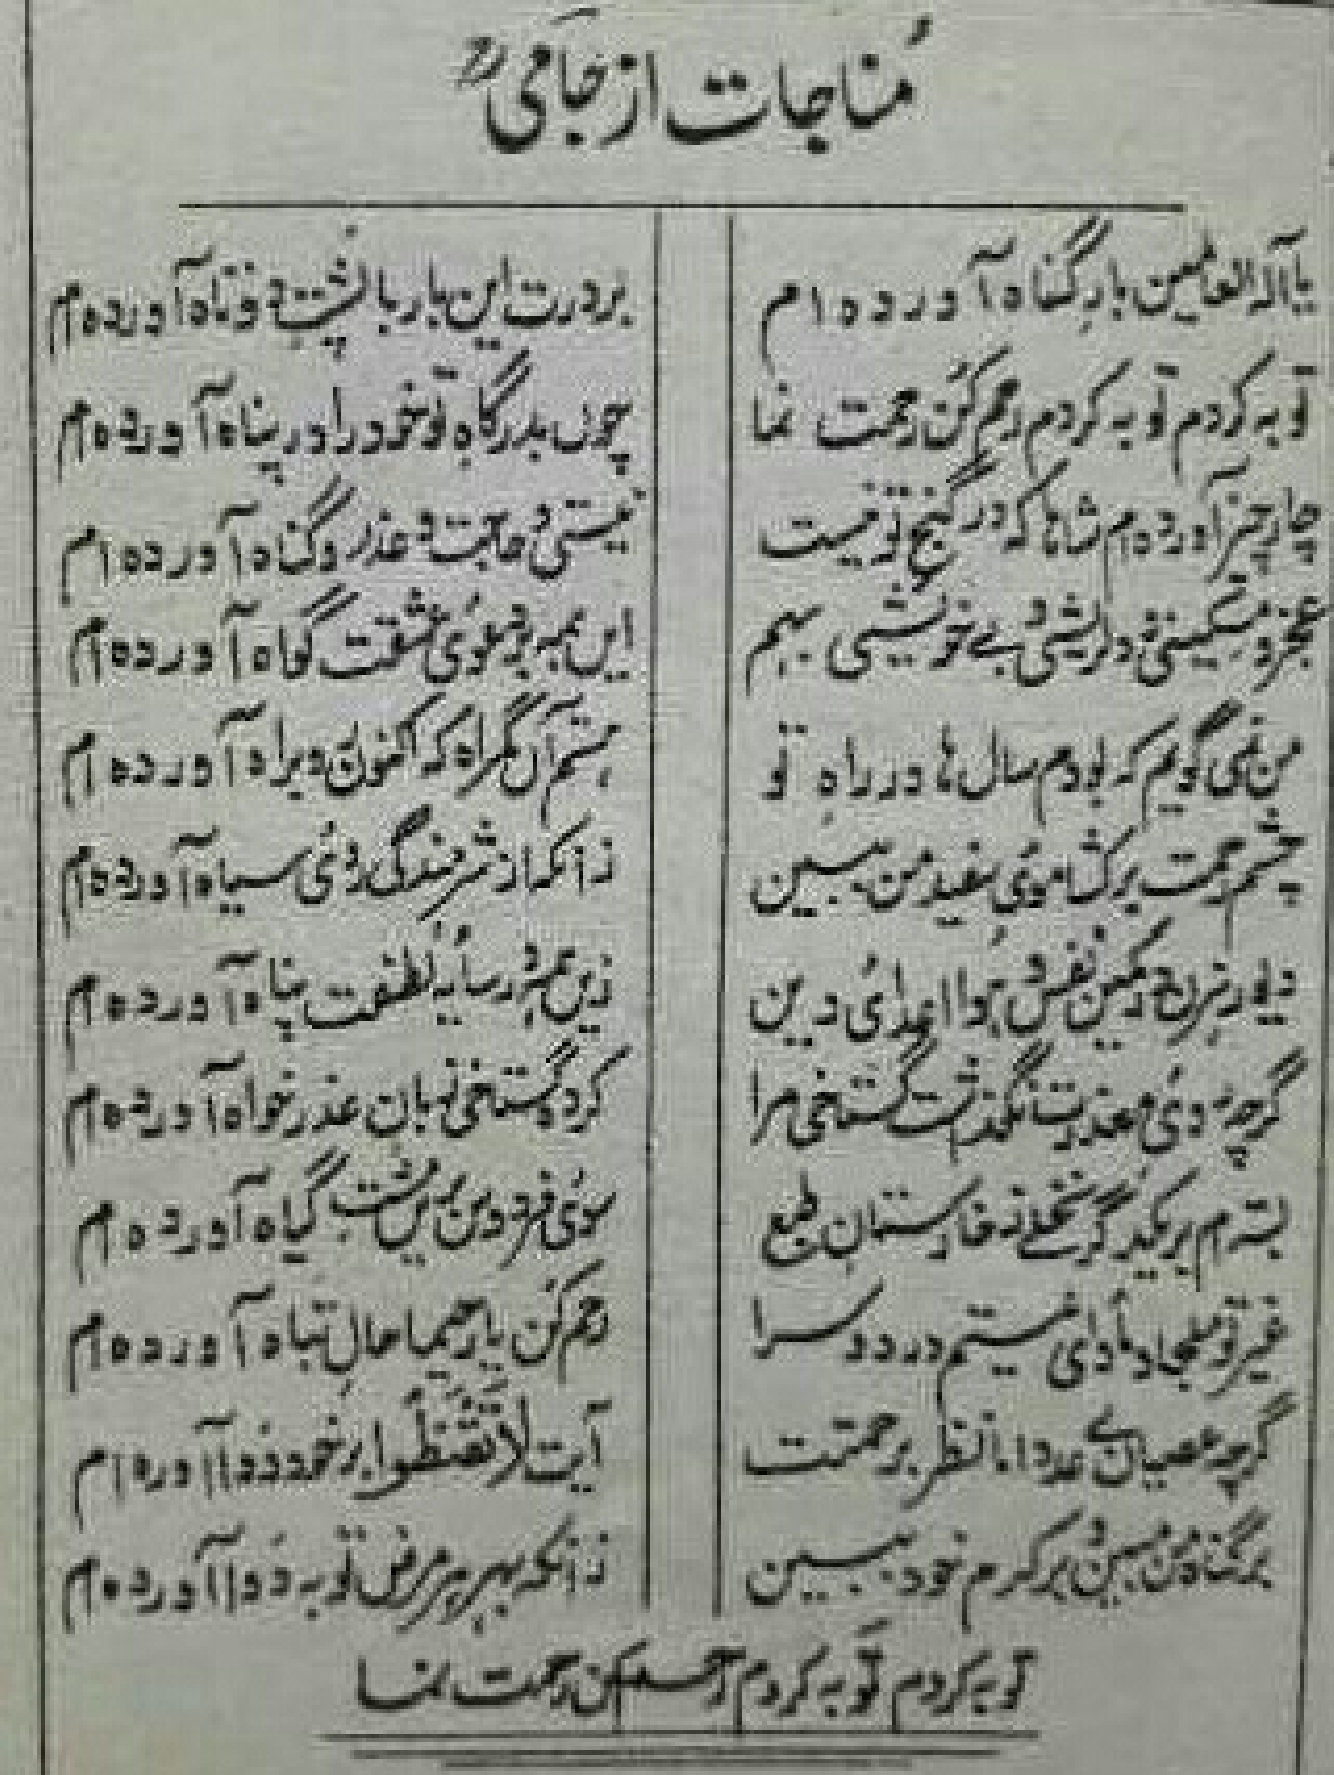 مُناجات از جَامی رح
یا آلہ العالمین بارِ گناہ آوردہ ام بر درت این بار با پُشتِ دوتاہ آوردہ ام
توبہ کردم توبہ کردم رحم کُن رحمت نما چوں بدرگاہِ تو خود را در پناہ آوردہ ام
چار چیز آوردہ ام شاہا کہ در گنج تو نیست نیستی و حاجت و عذر و گناہ آوردہ ام
عجز و مسکینی و درویشی و بے خویشی بہم این ہمہ بر دعوئ عشقت گواہ آوردہ ام
من نمی گویم کہ بودم سال ہا در راہِ تو ہستم آں گمراہ کہ اکنوں رو براہ آوردہ ام
چشم رحمت برکشا موئے سفید من ببین زانکہ از شرمندگی روئ سیاہ آوردہ ام
دیو رہزن در کمین نفس و ہوا اعدائ دین زین ہمہ در سایۂ لطفت پناہ آوردہ ام
گرچہ روئ معذرت نگذاشت گستاخی مرا کردہ گستاخی زبان عذر خواہ آوردہ ام
بستہ ام بر یکدگر نخلے ز خارستان طبع سوئ فردوس برین مشت گیاہ آوردہ ام
غیر تو ملجا و مأوای نیستم در دو سرا رحم کن یا رحیما حالِ تباہ آوردہ ام
گرچہ عصیان بے عدد اما نظر بر رحمتت آیت لَا تَقْنَطُوا بر خود آوردہ ام
بر گناہ من مبین و بر کرم خود ببین زانکہ بہر مرض توبہ دَوا آوردہ ام
توبہ کردم توبہ کردم رحم کن رحمت نما